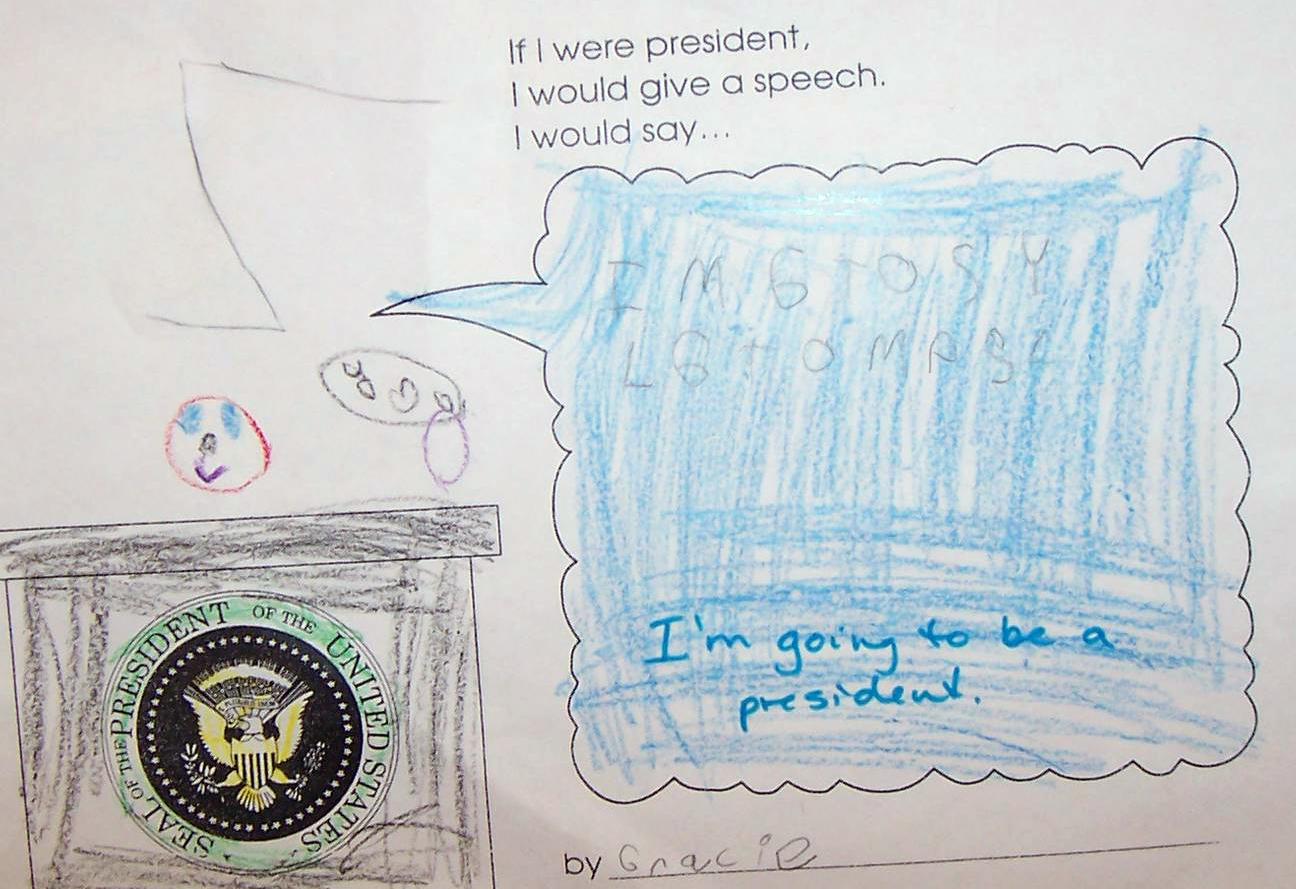 If I were president,
I would give a speech.
I would say...
I M G T O S Y
L G T O M P S
I'm going to be a
president.
SEAL OF THE PRESIDENT OF THE UNITED STATES
by Gracie